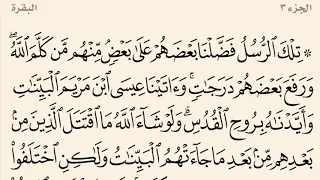 الجزء ٣ البقرة
۞ تِلْكَ ٱلرُّسُلُ فَضَّلْنَا بَعْضَهُمْ عَلَىٰ بَعْضٍۘ مِّنْهُم مَّن كَلَّمَ ٱللَّهُۖ
وَرَفَعَ بَعْضَهُمْ دَرَجَٰتٍۚ وَءَاتَيْنَا عِيسَى ٱبْنَ مَرْيَمَ ٱلْبَيِّنَٰتِ
وَأَيَّدْنَٰهُ بِرُوحِ ٱلْقُدُسِۗ وَلَوْ شَآءَ ٱللَّهُ مَا ٱقْتَتَلَ ٱلَّذِينَ مِنۢ
بَعْدِهِم مِّنۢ بَعْدِ مَا جَآءَتْهُمُ ٱلْبَيِّنَٰتُ وَلَٰكِنِ ٱخْتَلَفُوا۟